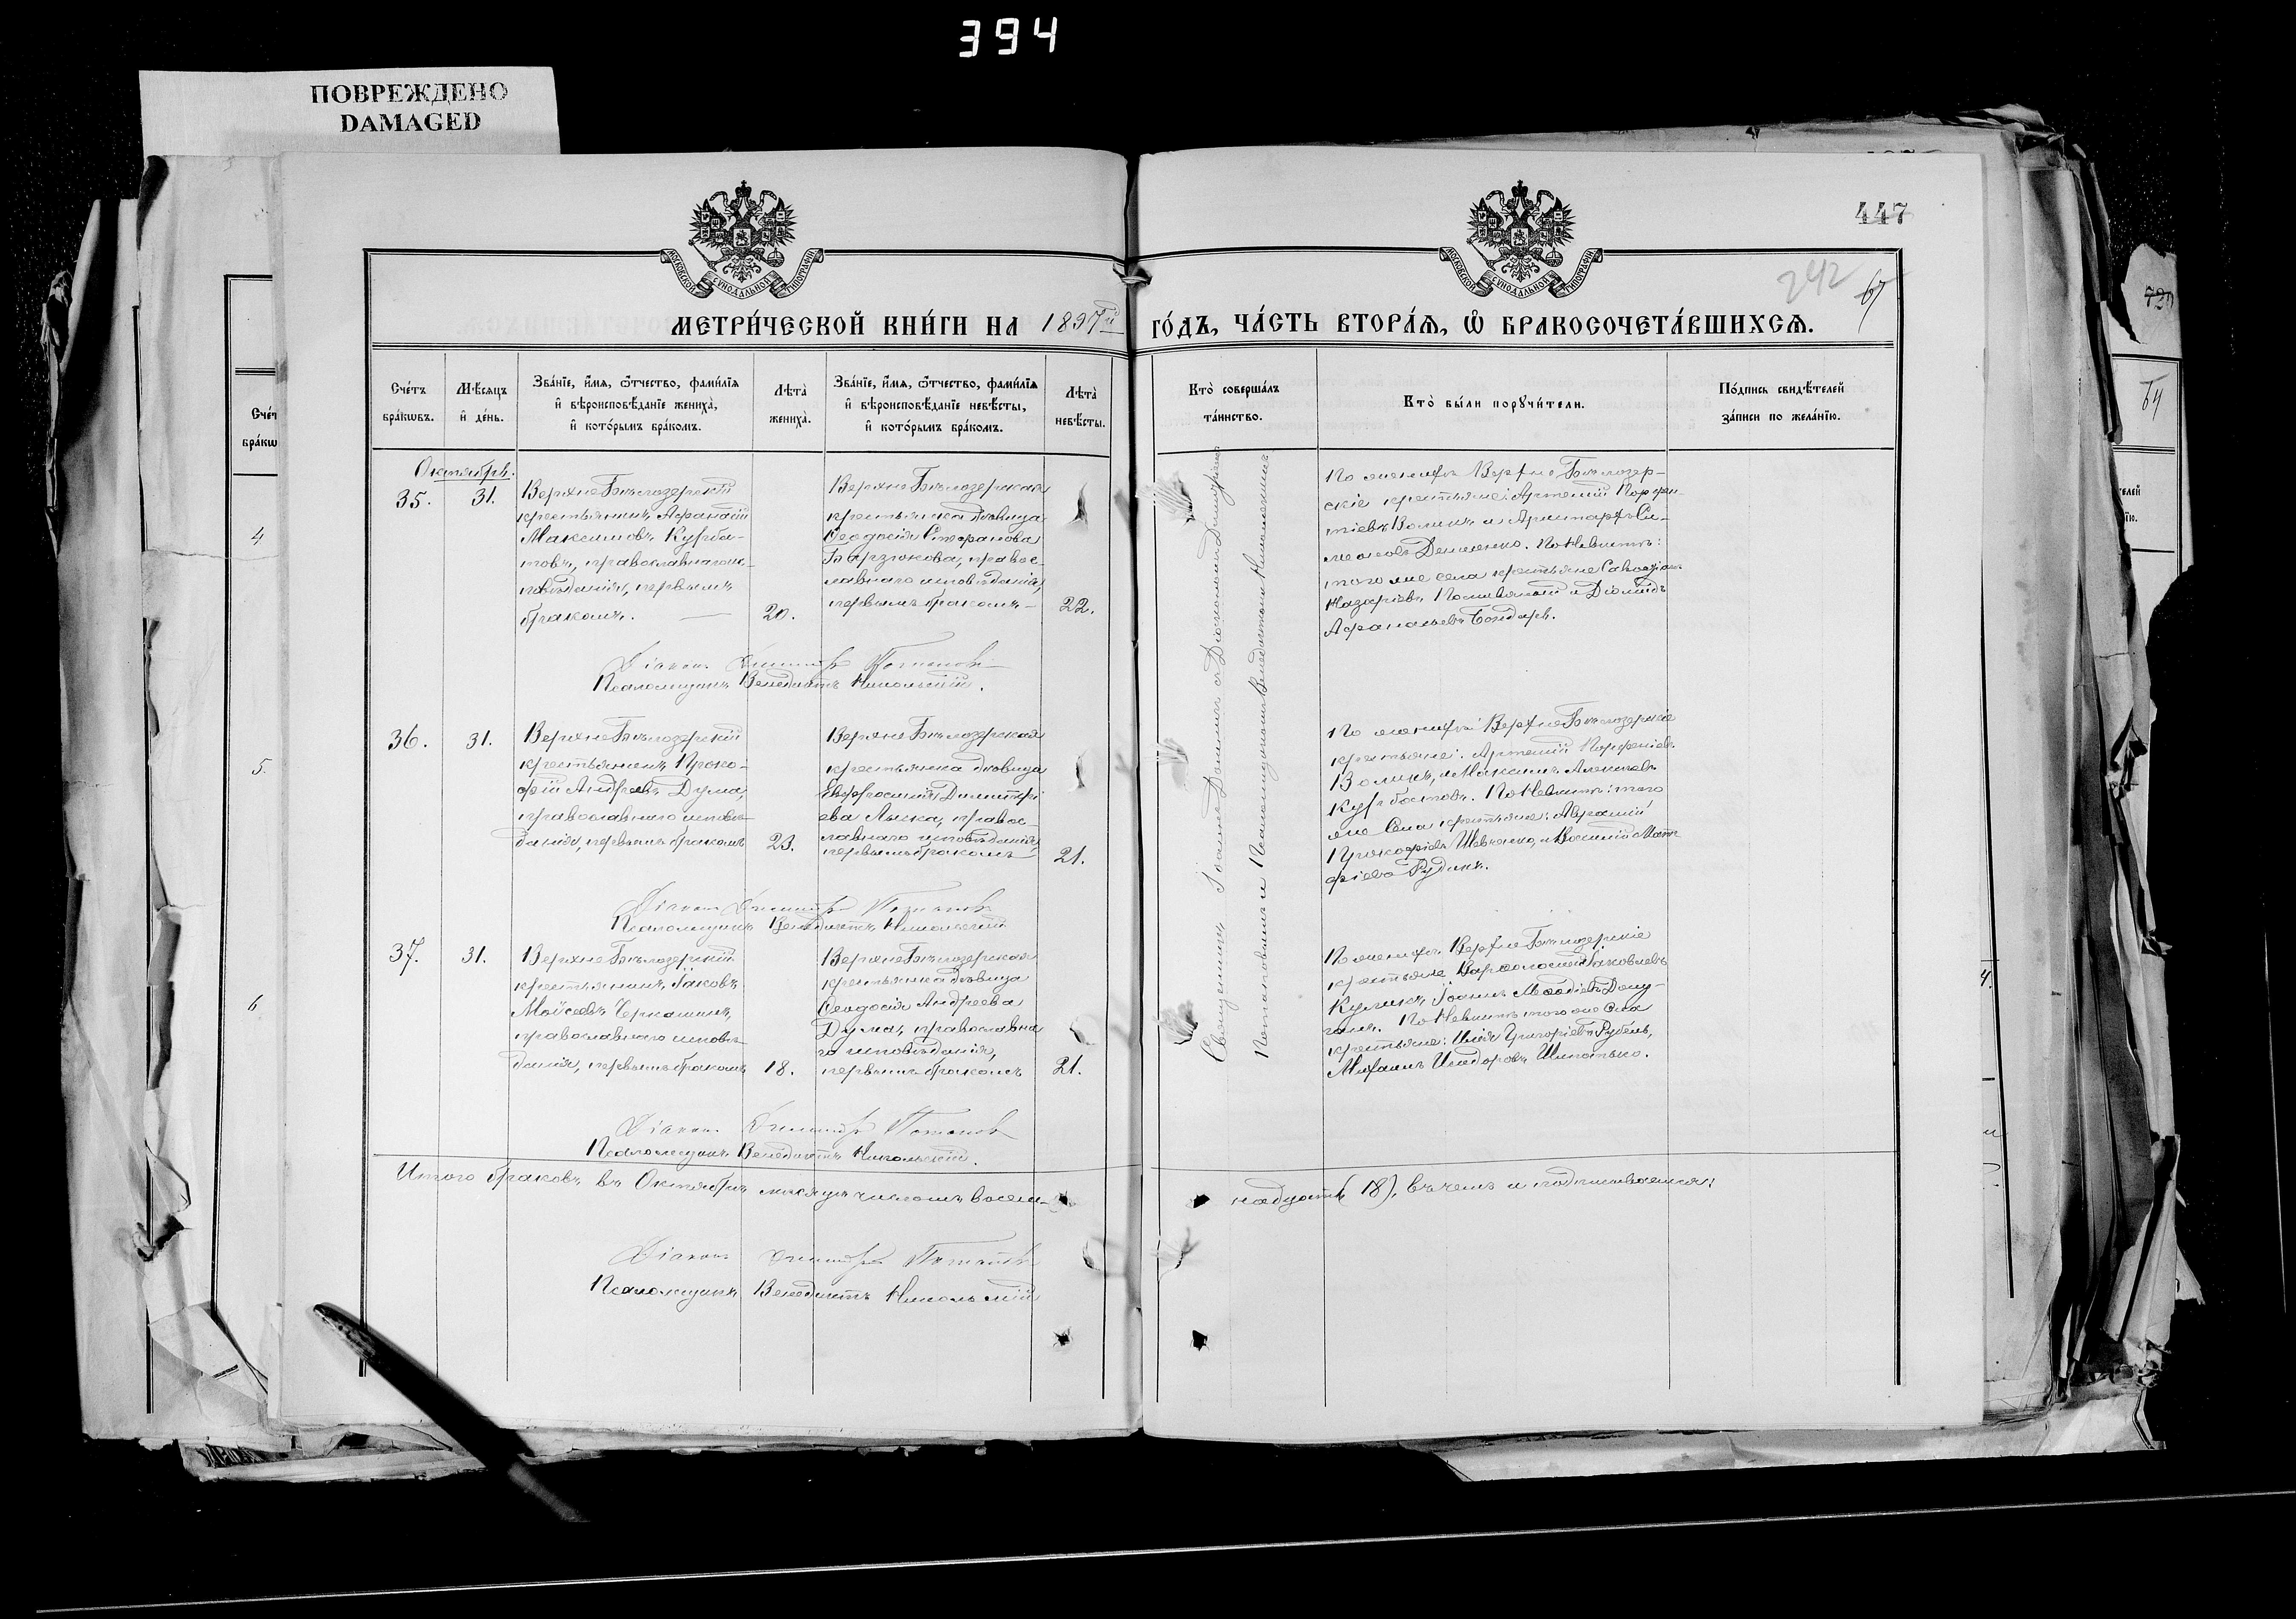 394
ПОВРЕЖДЕНО
DAMAGED
447
242
67
МЕТРИ́ЧЕСКОЙ КНИ́ГИ НА 1897й ГО́ДЪ, ЧА́СТЬ ВТОРА́Я, Ѡ҆ БРАКОСОЧЕТА́ВШИХСѦ.
Сче́тъ бра́кѡвъ.
Мѣ́сѧцъ и҆ де́нь.
Зва́нїе, и҆́мѧ, ѻ҆́тчество, фами́лїѧ
и҆ вѣроисповѣ́данїе жениха̀,
и҆ кото́рымъ бра́комъ.
Лѣ́та жениха̀.
Зва́нїе, и҆́мѧ, ѻ҆́тчество, фами́лїѧ
и҆ вѣроисповѣ́данїе невѣ́сты,
и҆ кото́рымъ бра́комъ.
Лѣ́та невѣ́сты.
Кто̀ соверша́лъ
та́инство.
Кто̀ бы́ли порꙋчи́тели.
По́дпись свидѣ́телей
за́писи по жела́нїю.
Октябрь.
35.
31.
ВерхнеБѣлозерскій
крестьянинъ Аѳанасій
Максимовъ Курба-
товъ, православнаго ис-
повѣданія, первымъ
бракомъ. —
20.
ВерхнеБѣлозерская
крестьянка дѣвица
Ѳеодосія Стефанова
Барзюкова, правос-
лавнаго исповѣданія,
первымъ бракомъ —
22.
По женихѣ ВерхнеБѣлозер-
скіе крестьяне: Артемій Порфи-
ріевъ Воликъ и Аристархъ Си-
меоновъ Демченко. По Невѣстѣ:
того же села крестьяне
Назаріевъ и Діомидъ
Аѳанасьевъ Бондарь.
Діаконъ Димитрій Потаповъ
Псаломщикъ Венедиктъ Никольскій.
36.
31.
ВерхнеБѣлозерскій
крестьянинъ Проко-
фій Андреевъ Дума,
православнаго исповѣ-
данія, первымъ бракомъ
23.
ВерхнеБѣлозерская
крестьянка дѣвица
Евфросинія Димитрі
ева Лыска, правос-
лавнаго исповѣданія,
первымъ бракомъ
21.
По женихѣ: ВерхнеБѣлозерскіе
крестьяне: Артемій Порфиріевъ
Воликъ, и Максимъ Алексѣевъ
Курбатовъ. По Невѣстѣ: того
же Села крестьяне: Аврамій
Прокофіевъ Шевченко, и Василій Мат-
фіевъ Рудикъ.
Діаконъ Димитрій Потаповъ
Псаломщикъ Венедиктъ Никольскій
37.
31.
ВерхнеБѣлозерскій
крестьянинъ Іаковъ
Моисеевъ Черкашинъ,
православнаго исповѣ-
данія, первымъ бракомъ
18.
ВерхнеБѣлозерская
крестьянка дѣвица
Ѳеодосія Андреева
Дума, православна
го исповѣданія,
первымъ бракомъ
21.
По женихѣ: ВерхнеБѣлозерскіе
крестьяне Варѳоломей Іаковлевъ
Куликъ, Іоаннъ Меѳодіевъ
По Невѣстѣ того же Села
крестьяне: Илія Григоріевъ Рубель,
Михаилъ Исидоровъ Шпотько.
Діаконъ Димитрій Потаповъ
Псаломщикъ Венедиктъ Никольскій.
Священникъ Іоаннъ съ Діакономъ Димитріемъ
Потаповымъ и Псаломщикомъ Венедиктомъ Никольскимъ
Итого браковъ въ Октябрѣ мѣсяцѣ числомъ восем-
надцать (18), въ чемъ и подписываемся:
Діаконъ Димитрій Потаповъ
Псаломщикъ Венедиктъ Никольскій
4
5.
6